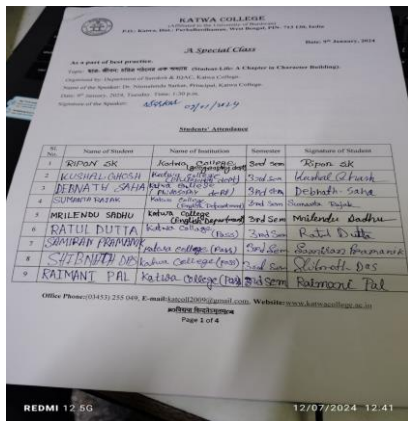 KATWA COLLEGE
(Affiliated to the University of Burdwan)
P.O.: Katwa, Dist.: Purba Bardhaman, West Bengal, PIN- 713 130, India
Date: 9th January, 2024
A Special Class
As a part of best practice.
(Student-Life: A Chapter in Character Building).
Organized by: Department of Sanskrit & IQAC, Katwa College.
Name of the Speaker: Dr. Nirmalendu Sarkar, Principal, Katwa College.
Date: 9th January, 2024, Tuesday. Time: 1:30 p.m.
Signature of the Speaker: 09/01/2024
Students' Attendance
Sl. No. Name of Student Name of Institution Semester Signature of Student
1 RIPON SK Katwa College (Geography dept) 3rd Sem Ripon SK
2 KUSHAL GHOSH Katwa College 3rd Sem Kushal Ghosh
3 DEBNATH SAHA Katwa College dept) 3rd Sem Debnath Saha
4 SUMANTA RAJAK Katwa College (English Department) 3rd Sem Sumanta Rajak
5 MRILENDU SADHU Katwa College (English Department) 3rd Sem Mrilendu Sadhu
6 RATUL DUTTA Katwa College (Pass) 3rd Sem Ratul Dutta
7 SAMIRAN PRAMANIK Katwa College (Pass) 3rd Sem Samiran Pramanik
8 SHIBNATH DAS Katwa College (Pass) 3rd Sem Shibnath Das
9 RAIMANT PAL Katwa College (Pass) 3rd Sem Raimant Pal
Office Phone:(03453) 255 049, E-mail:katcoll2009@gmail.com, Website:www.katwacollege.ac.in
Page 1 of 4
REDMI 12 5G
12/07/2024 12:41